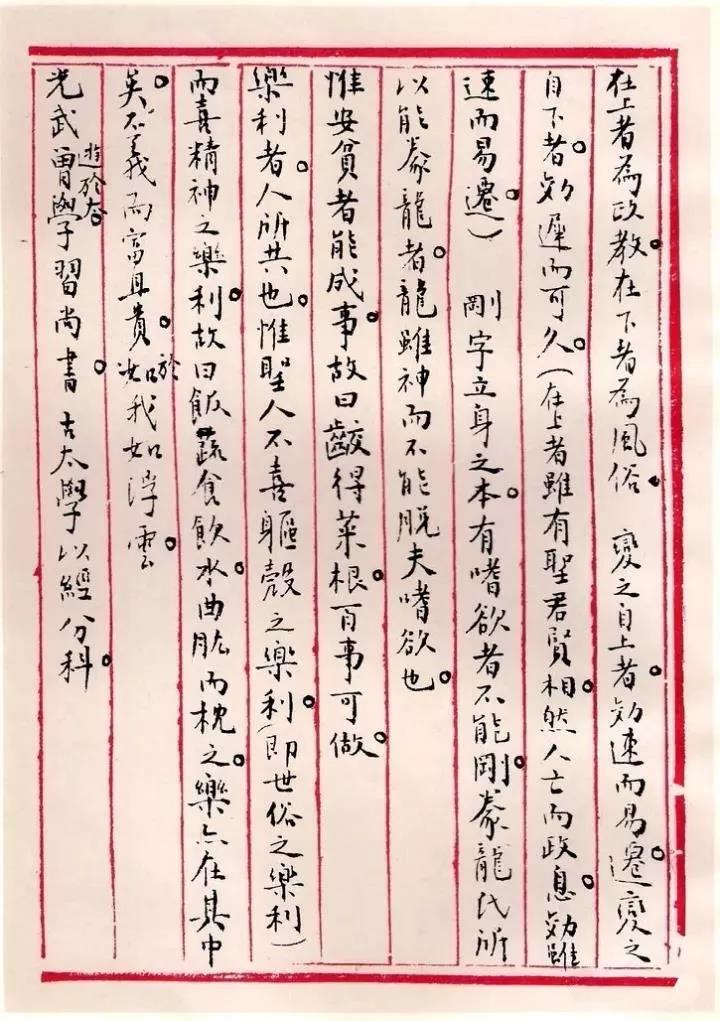 在上者為政教。在下者為風俗。 變之自上者。効速而易遷。變之
自下者。効遲而可久。(在上者雖有聖君賢相。然人亡而政息。効雖
速而易遷。) 剛字立身之本。有嗜欲者不能剛。豢龍氏所
以能豢龍者。龍雖神而不能脫夫嗜欲也。
惟安貧者能成事。故曰齩得菜根。百事可做。
樂利者。人所共也。惟聖人不喜軀殼之樂利。(即世俗之樂利)
而喜精神之樂利。故曰飯蔬食飲水。曲肱而枕之。樂亦在其中
矣。不義而富且貴。於我如浮雲。
光武曾遊於太學習尚書。 古太學以經分科。